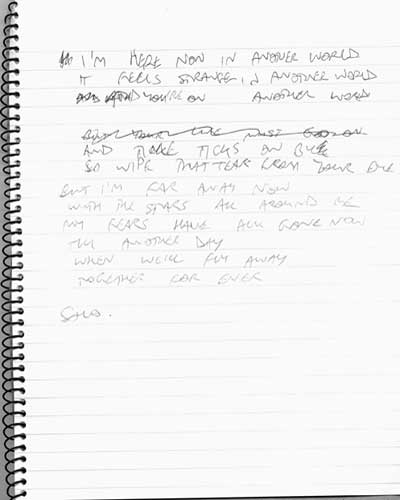 I'M HERE NOW IN ANOTHER WORLD
IT FEELS STRANGE, IN ANOTHER WORLD
YOU'RE ON ANOTHER WORD
AND TIME TICKS ON BYE
SO WIPE THAT TEAR FROM YOUR EYE
BUT I'M FAR AWAY NOW
WITH THE STARS ALL AROUND ME
MY FEARS HAVE ALL GONE NOW
TILL ANOTHER DAY
WHEN WE'LL FLY AWAY
TOGETHER FOR EVER
SOLO.